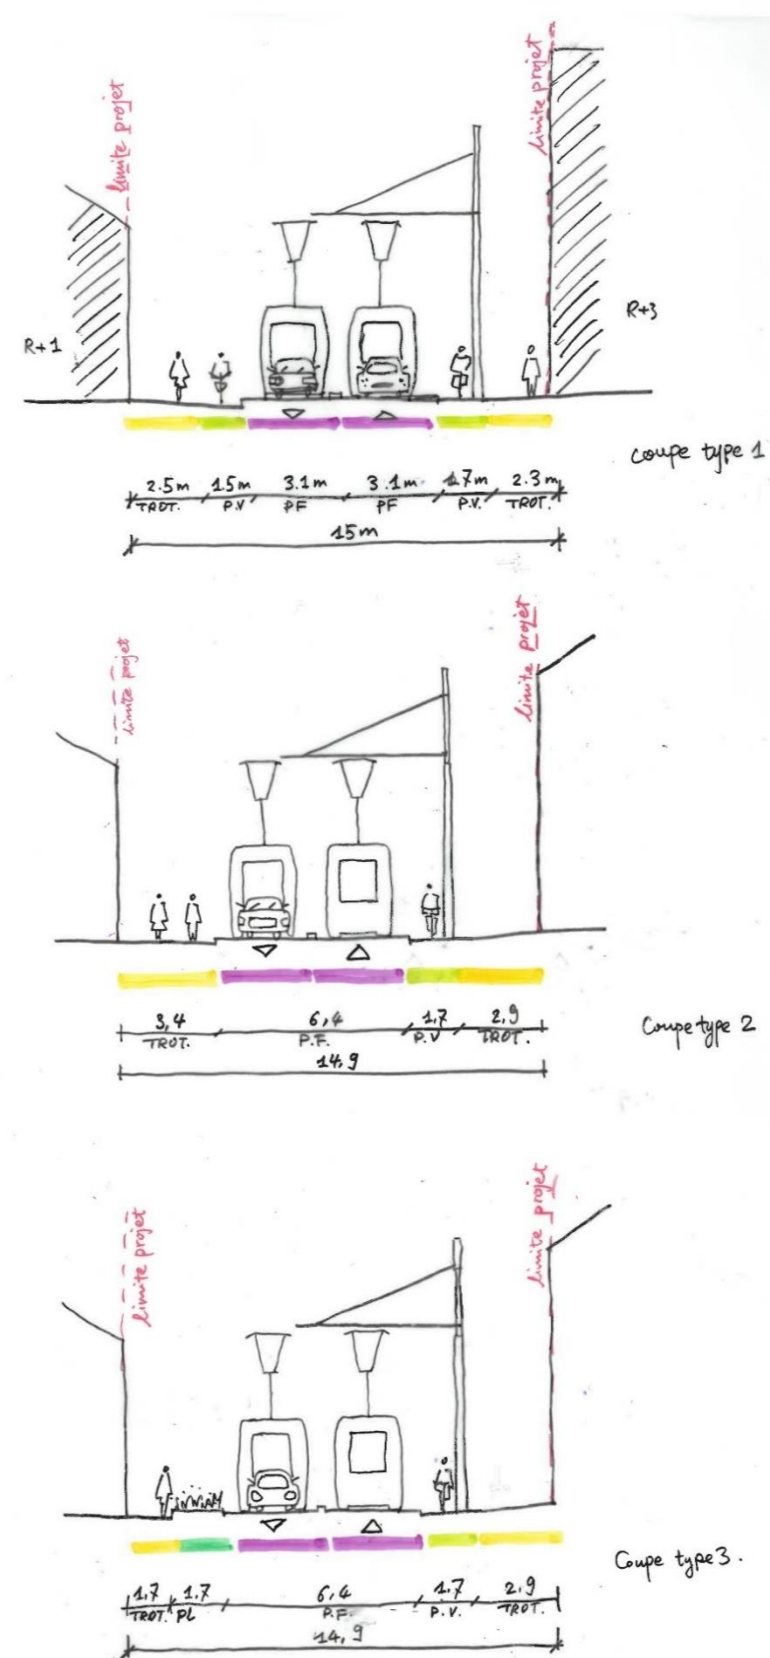 limite projet
limite projet
R+1
R+3
coupe type 1
2.5m 1.5m 3.1m 3.1m 1.7m 2.3m
TROT. P.V PF PF P.V. TROT.
15m
limite projet
limite projet
3,4 6,4 1,7 2,9
TROT. P.F. P.V TROT.
14,9
Coupe type 2
limite projet
limite projet
Coupe type 3.
1,7 1,7 6,4 1,7 2,9
TROT. PL P.F. P.V. TROT.
14,9